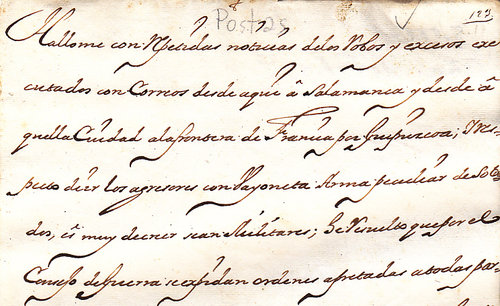 Postas
183
Hallome con Repetidas noticias delos Robos y excesos exe
cutados con Correos desde aqui â Salamanca y desde â
quella Ciudad ala frontera de Francia por Guipuzcoa; Y res-
pecto deir los agresores con Vayoneta Arma peculiar de Solda
dos, es muy decreer sean Militares; He Resuelto que por el
Consejo de Guerra se expidan ordenes apretadas atodas par-